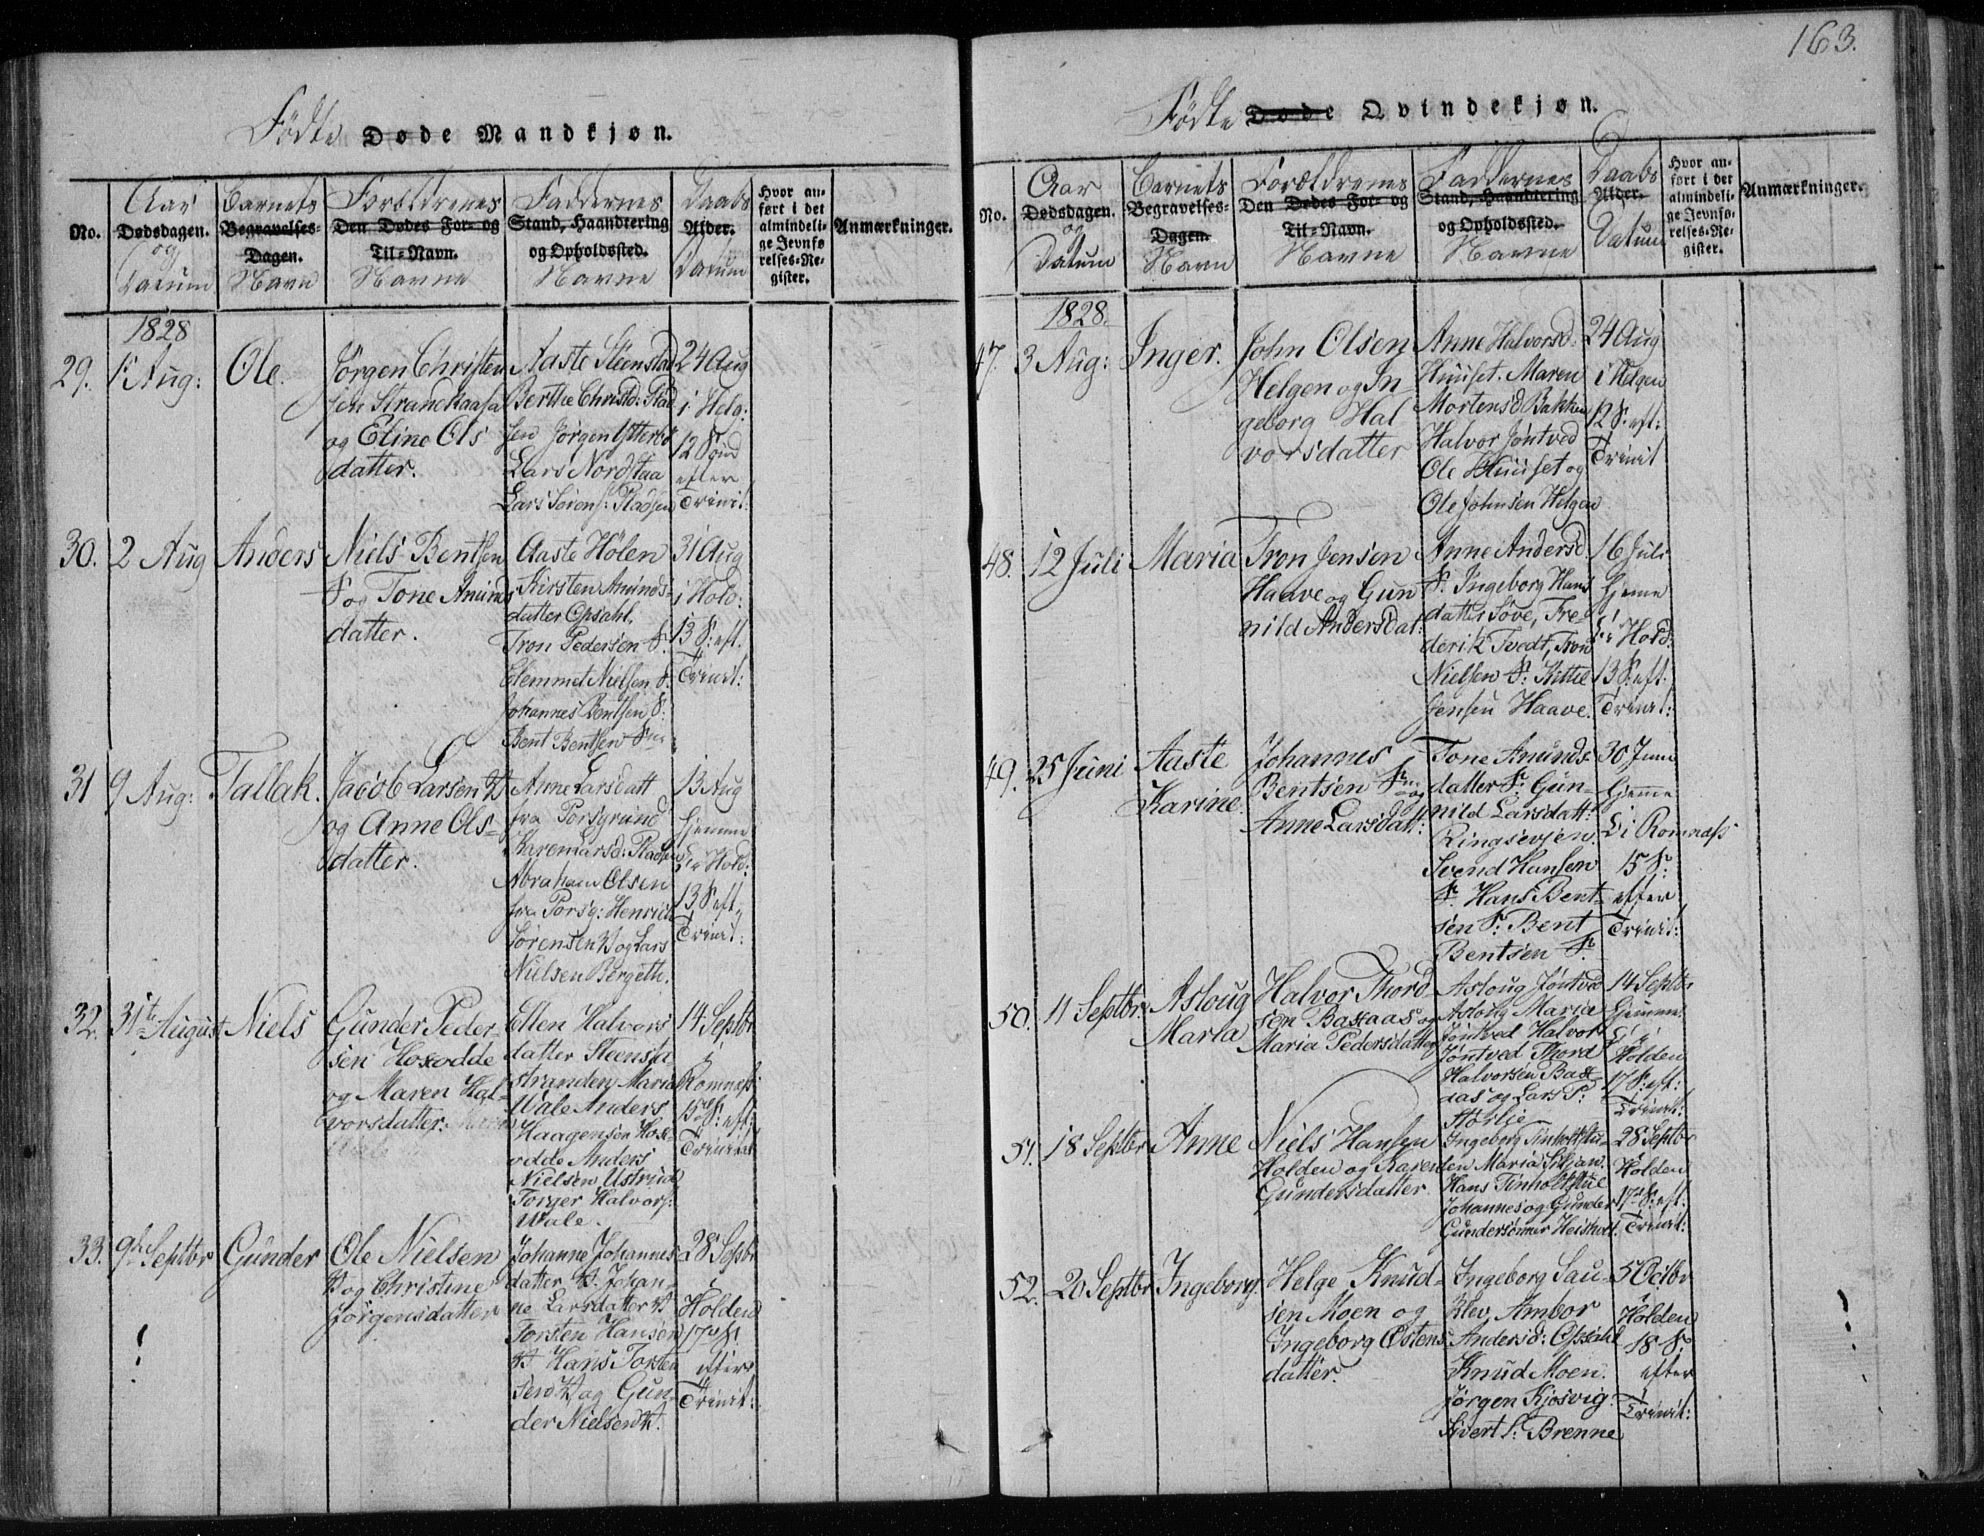 163.
Födte Døde Mandkjøn.
No.
Aar
Dødsdagen.
og
Datum
Barnets
Begravelses-
Dagen.
Navn
Forældrenes
Den Dødes For- og
Til-Navn.
Navne
Faddernes
Stand, Haandtering
og Opholdssted.
Navne
Daabs
Alder.
Datum
Hvor an-
ført i det
almindeli-
ge Jevnfø
relses-Re-
gister.
Anmærkninger.
1828
29.
1 Aug:
Ole.
Jörgen Christen
sen Strandkaasa
og Eline Ols
datter.
Aaste Steenstad
Berthe Christd:
sen Jörgen
Lars Nordstaa
Lars Sörens: Pladsen
24 Aug
i Helg:
12 S
efter
Trinit:
30.
2 Aug
Anders
Niels Bentsen
S og Tone Amund
datter.
Aaste Hölen
Kirsten Amunds-
datter Opsahl.
Tron Pedersen S:
Clemmet Nielsen S:
Johannes Bentsen S:
Bent Bentsen
31 Aug
i Hold:
13 S: eft.
Trinit:
31
9 Aug:
Tallak.
Jacob Larsen
og Anne Ols-
datter.
Anne Larsdatt
fra Porsgrund
Karen Larsd: Pladsen
Abraham Olsen
fra Porsg: Henrich
Sörensen og Lars
Nielsen Bergeth.
13 Aug
hjemme
i Hold:
13 S eft.
Trinit:
32.
31te August
Niels
Gunder Peder-
sen Hoxodde
og Maren Hal-
vorsdatter:
Ellen Halvors
datter Steensta
stranden Maria
Wale Anders
Haagensen Hox-
odde Anders
Nielsen Ustrud
Torger Halvors:
Wale.
14 Septbr
i
Romnæs
15 S: eft:
Trinit
33.
9de Septbr
Gunder
Ole Nielsen
og Christine
Jörgensdatter
Johanne Johannes-
datter Johan-
ne Larsdatter
Torsten Hansen
Hans Torsten
sen og Gun-
der Nielsen
28 Septbr
i
Holden
17 S
efter
Trinit:
Födte Døde Qvindekjøn.
No.
Aar
Dødsdagen.
og
Datum
Barnets
Begravelses-
Dagen.
Navn
Forældrenes
Den Dødes For- og
Til-Navn.
Navne
Faddernes
Stand, Haandtering
og Opholdssted.
Navne
Daabs
Alder.
Datum
Hvor an-
ført i det
almindeli-
ge Jevnfø-
relses-Re-
gister.
Anmærkninger.
1828.
47.
3 Aug:
Inger.
John Olsen
Helgen og In
geborg Hal
vorsdatter
Anne Halvorsd:
Huuset. Maren
Mortensd Bakken
Halvor Jöntved
Ole Huuset og
Ole Johnsen Helgen
24 Aug
i Helgen
12 S. eft:
Trinit
48.
12 Juli
Maria
Tron Jensen
Haave og Gun
nild Andersdat:
Anne Andersd
S. Ingeborg Hans
datter Söve, Fre-
derik Tvedt, Tron
Nielsen S: Kittil
Jensen Haave.
16 Juli
hjeme
i Hold:
13 S: eft.
Trinit:
49.
25 Juni
Aaste
Karine.
Johannes
Bentsen og
Anne Larsdatt:
Tone Amunds-
datter S: Gun-
nild Larsdatt:
Ringsevjen.
Svend Hansen
S. Hans Bent-
sen S: Bent
Bentsen S:
30 Juni
hjeme
i Romnæs
15 S:
efter
Trinit:
50.
11 Septbr
Asloug
Maria
Halvor Thord-
sen Baxaas og
Maria Pedersdatter
Asloug Jöntved
Aslong Maria
Jöntved Halvor
Jöntved Thord
Halvorsen Bax-
aas og Lars P:
14 Septbr
hjemme.
i
Holden
17 S: eft:
Trinit:
51.
18 Septbr
Anne
Niels Hansen
Holden og Karen
Gundersdatter
Ingeborg Tinholtstu-
en Maria
Hans Tinholtstue
Johannes og Gunder
Gundersönner Heisholt.
28 Septbr
Holden
17 S. eft:
Trinit:
52.
20 Septbr
Ingeborg.
Helge Knud-
sen Moen og
Ingeborg Östens-
datter.
Ingeborg Sau-
klev, Ambor
Andersd: Opsahl
Knud Moen.
Jörgen Kjosvig:
Sivert S: Brenne
5 Octbr
i
Holden
18 S
efter
Trinit: